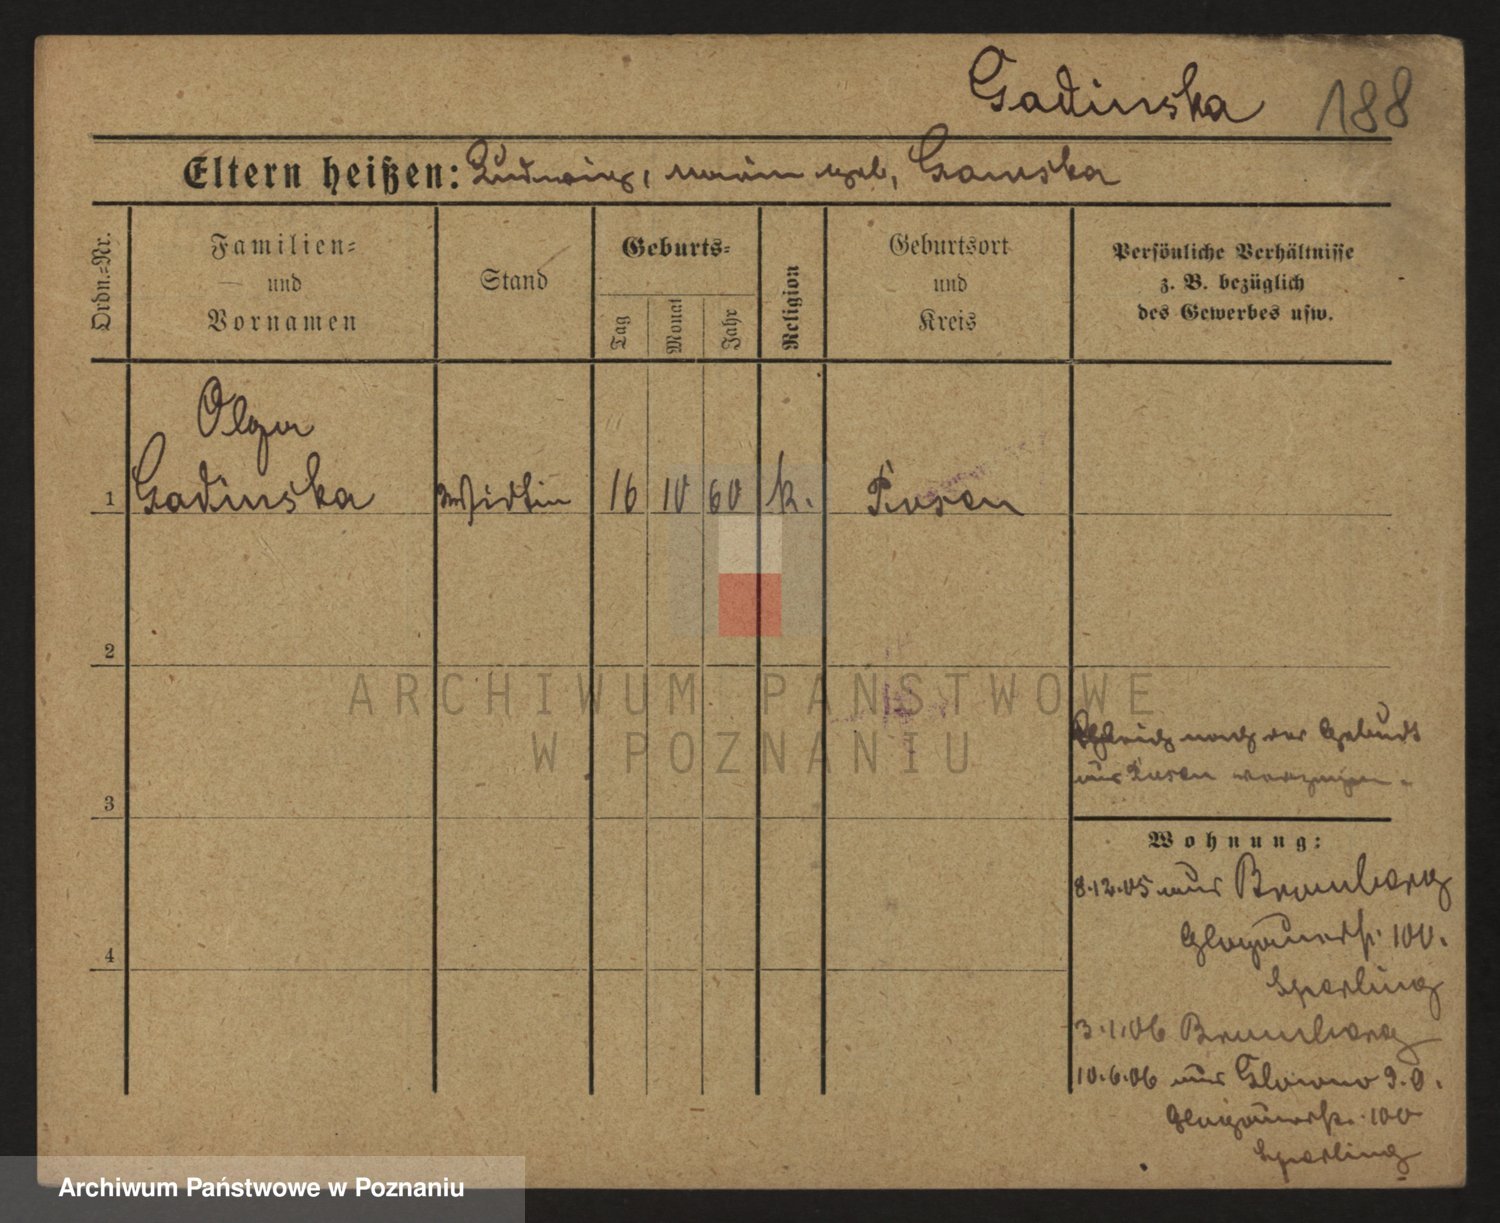 Gadinska 188
Eltern heißen: Ludwig, Maria geb. Gamska
Ordn.-Nr.
Familien-
und
Vornamen
Stand
Geburts-
Tag
Monat
Jahr
Religion
Geburtsort
und
Kreis
Persönliche Verhältnisse
z. B. bezüglich
des Gewerbes usw.
Olga
1 Gadinska 16 10 60 k. Posen
2
3
4
gleich nach der Geburt
aus Posen verzogen.
Wohnung:
8.12.05 aus Bromberg
Glogauerstr. 100.
Sperling
3.1.06 Bromberg
10.6.06 aus Glowno P.O.
Glogauerstr. 100
Sperling
ARCHIWUM PAŃSTWOWE
W POZNANIU
Archiwum Państwowe w Poznaniu